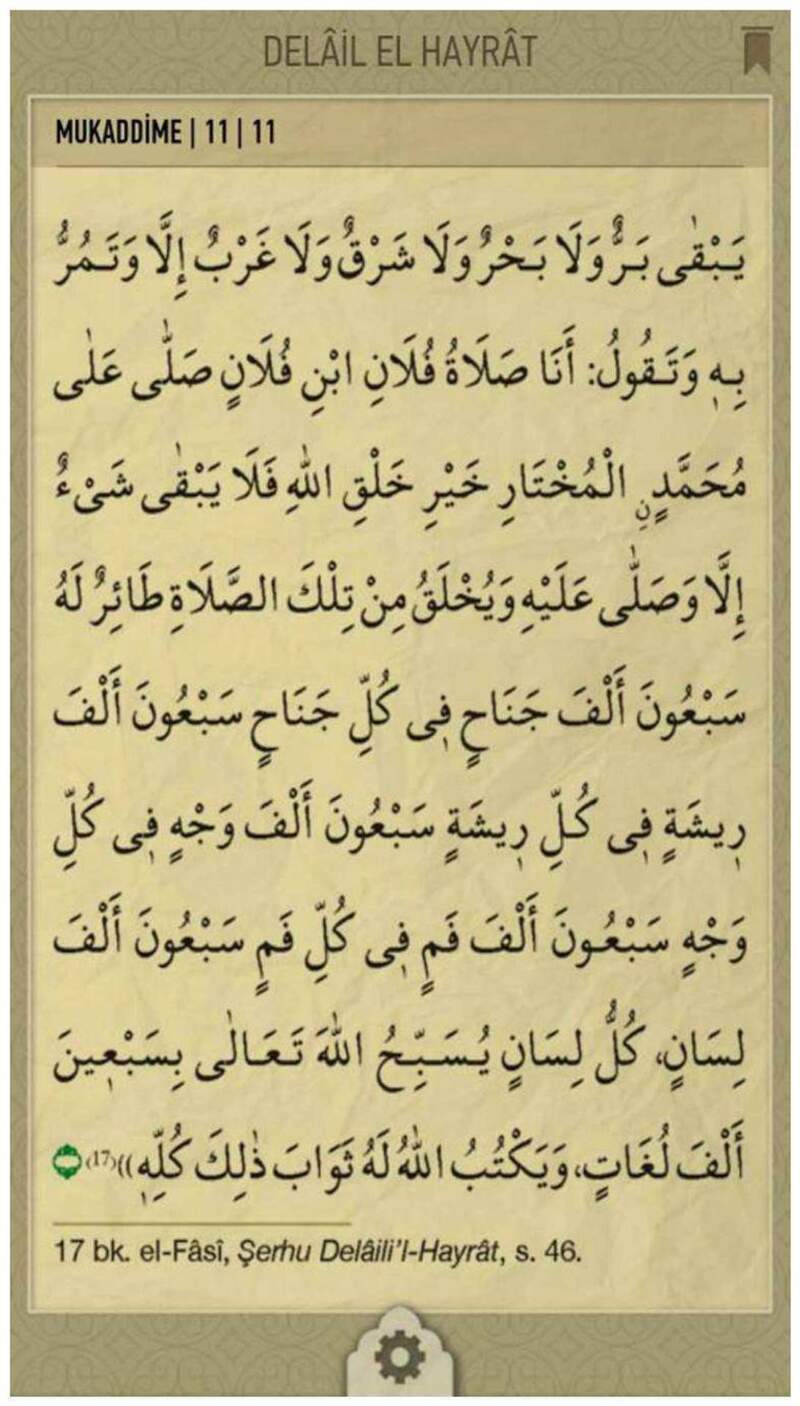 DELÂİL EL HAYRÂT
MUKADDİME | 11 | 11
يَبْقٰى بَرٌّ وَلَا بَحْرٌ وَلَا شَرْقٌ وَلَا غَرْبٌ إِلَّا وَتَمُرُّ
بِهٖ وَتَقُولُ: أَنَا صَلَاةُ فُلَانِ ابْنِ فُلَانٍ صَلّٰى عَلٰى
مُحَمَّدٍ ۨالْمُخْتَارِ خَيْرِ خَلْقِ اللهِ فَلَا يَبْقٰى شَىْءٌ
إِلَّا وَصَلّٰى عَلَيْهِ وَيُخْلَقُ مِنْ تِلْكَ الصَّلَاةِ طَائِرٌ لَهُ
سَبْعُونَ أَلْفَ جَنَاحٍ فٖى كُلِّ جَنَاحٍ سَبْعُونَ أَلْفَ
رٖيشَةٍ فٖى كُلِّ رٖيشَةٍ سَبْعُونَ أَلْفَ وَجْهٍ فٖى كُلِّ
وَجْهٍ سَبْعُونَ أَلْفَ فَمٍ فٖى كُلِّ فَمٍ سَبْعُونَ أَلْفَ
لِسَانٍ، كُلُّ لِسَانٍ يُسَبِّحُ اللهَ تَعَالٰى بِسَبْعٖينَ
أَلْفَ لُغَاتٍ، وَيَكْتُبُ اللهُ لَهُ ثَوَابَ ذٰلِكَ كُلِّهٖ))(17)
17 bk. el-Fâsî, Şerhu Delâili’l-Hayrât, s. 46.